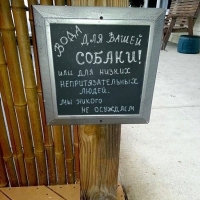 ВОДА ДЛЯ ВАШЕЙ
СОБАКИ!
ИЛИ ДЛЯ НИЗКИХ
НЕПРИТЯЗАТЕЛЬНЫХ
ЛЮДЕЙ.
МЫ НИКОГО
НЕ ОСУЖДАЕМ